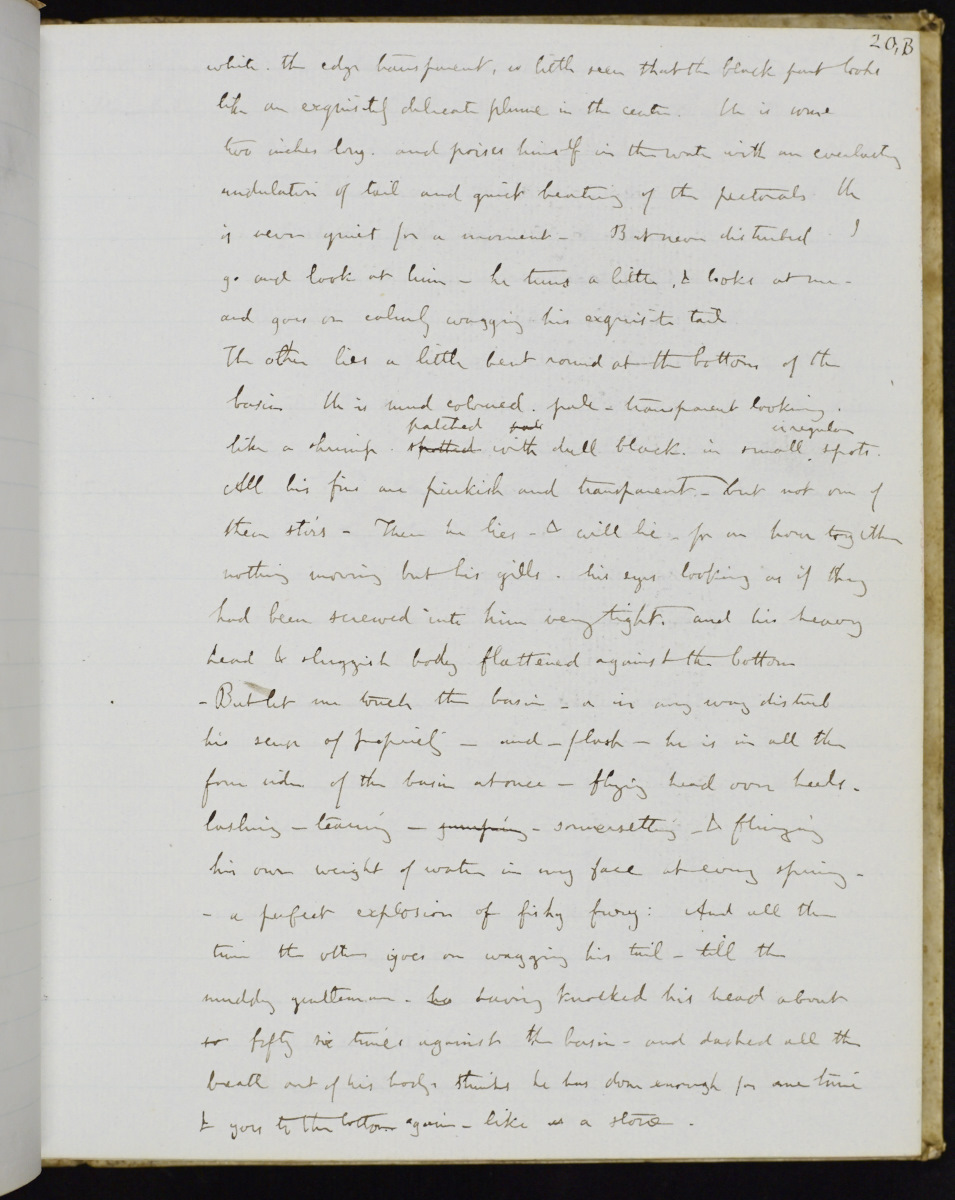 20,B
white. the edge transparent, so little seen that the black part looks
like an exquisitely delicate plume in the centre. He is some
two inches long. and poises himself in the water with an everlasting
undulation of tail and quick beating of the pectorals He
is never quiet for a moment - But never disturbed. I
go and look at him - he turns a little, & looks at me -
and goes on calmly wagging his exquisite tail
The other lies a little bent round at the bottom of the
basin He is mud coloured. pale - transparent looking.
patched irregular
like a shrimp. spotted with dull black. in small, spots.
All his fins are pinkish and transparent - but not one of
them stirs - There he lies - & will lie - for an hour together
nothing moving but his gills. his eyes looking as if they
had been screwed into him very tight. and his heavy
head & sluggish body flattened against the bottom
- But let me touch the basin - or in any way disturb
his sense of propriety - and - flash - he is in all the
four sides of the basin at once - flying head over heels -
lashing - tearing - jumping - somersetting - & flinging
his own weight of water in my face at every spring -
- a perfect explosion of fishy fury: And all the
time the other goes on wagging his tail - till the
muddy gentleman - having knocked his head about
fifty six times against the basin - and dashed all the
breath out of his body thinks he has done enough for one time
& goes to the bottom again - like a stone.